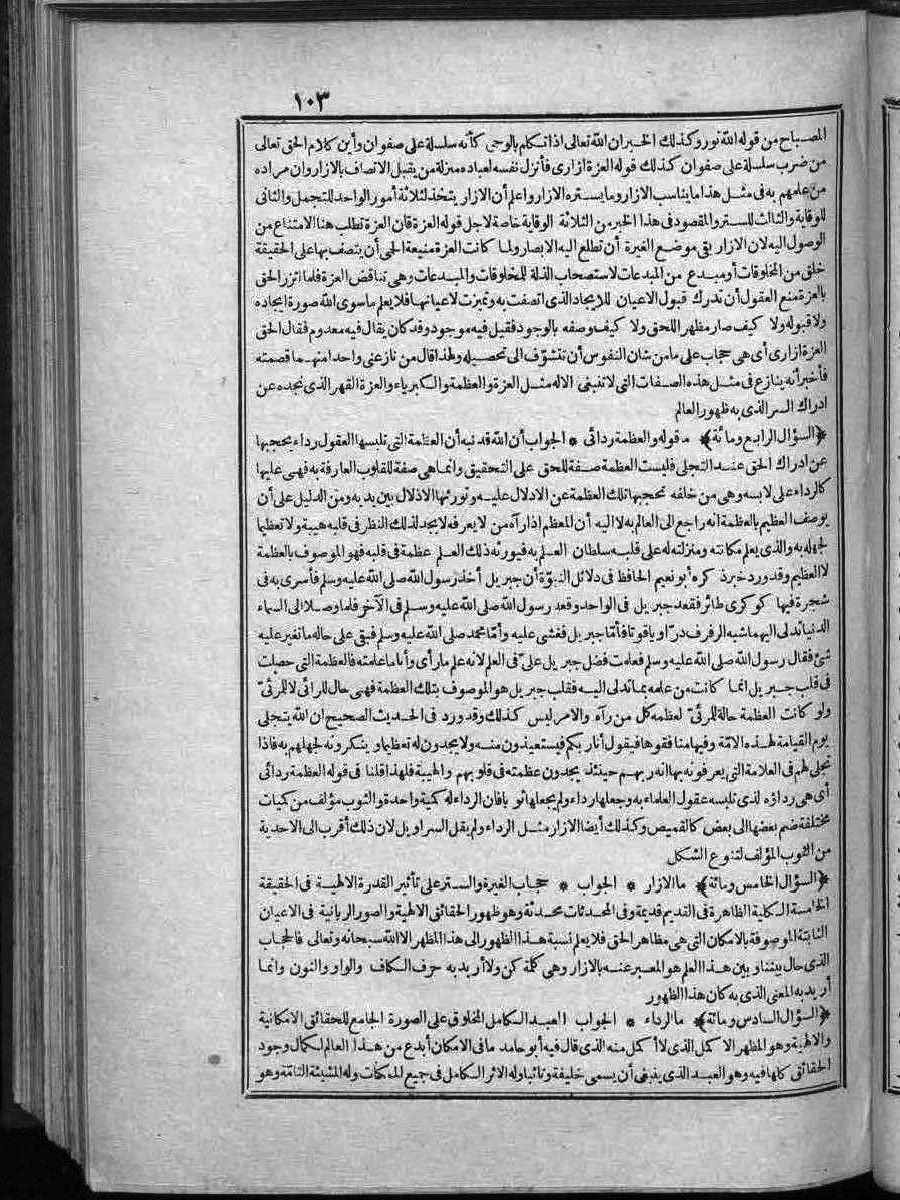 ١٠٣
المصباح من قوله الله نور وكذلك الخبر ان الله تعالى اذا تكلم بالوحى كأنه سلسلة على صفوان وأين كلام الحق تعالى
من ضرب سلسلة على صفوان كذلك قوله العزة ازارى فأنزل نفسه لعباده منزلة من يقبل الاتصاف بالازار وان مراده
من علمهم به فى مثل هذا ما يناسب الازار وما يستره الازار واعلم أن الازار يتخذ لثلاثة أمور الواحد للتجمل والثانى
للوقاية والثالث للستر والمقصود فى هذا الخبر من الثلاثة الوقاية خاصة لاجل قوله العزة فان العزة تطلب هنا الامتناع من
الوصول اليه لان الازار بقى موضع الغيرة أن تطلع اليه الابصار ولما كانت العزة منيعة الحى أن يتصف بها على الحقيقة
خلق من المخلوقات أو مبدع من المبدعات لاستصحاب الذلة للمخلوقات والمبدعات وهى تناقض العزة فلما اتزر الحق
بالعزة منع العقول أن تدرك قبول الاعيان للايجاد الذى اتصفت به وتميزت لاعيانها فلا يعلم ما سوى الله صورة ايجاده
ولا قبوله ولا كيف صار مظهرا للحق ولا كيف وصفه بالوجود فقيل فيه موجود وقد كان يقال فيه معدوم فقال الحق
العزة ازارى أى هى حجاب على ما من شان النفوس أن تتشوّف الى تحصيله ولهذا قال من نازعنى واحدا منهما قصمته
فأخبر أنه ينازع فى مثل هذه الصفات التى لا تنبغى الا له مثل العزة والعظمة والكبرياء والعزة القهر الذى نجده عن
ادراك السر الذى به ظهور العالم
﴿السؤال الرابع ومائة﴾ ما قوله والعظمة ردائى * الجواب أن الله قد نبه أن العظمة التى تلبسها العقول رداء يحجبها
عن ادراك الحق عند التجلى فليست العظمة صفة للحق على التحقيق وانما هى صفة للقلوب العارفة به فهى عليها
كالرداء على لابسه وهى من خلفه تحجبها تلك العظمة عن الادلال عليه وتورثها الاذلال بين يديه ومن الدليل على أن
يوصف العظيم بالعظمة انه راجع الى العالم به لا اليه أن المعظم اذا رآه من لا يعرفه لا يجد لذلك النظر فى قلبه هيبة ولا تعظيما
لجهله به والذى يعلم مكانته ومنزلته له على قلبه سلطان العلم به فيورثه ذلك العلم عظمة فى قلبه فهو الموصوف بالعظمة
لا العظيم وقد ورد خبر ذكره أبو نعيم الحافظ فى دلائل النبوّة أن جبريل أخذ رسول الله صلى الله عليه وسلم فأسرى به فى
شجرة فيها كوكرى طائر فقعد جبريل فى الواحد وقعد رسول الله صلى الله عليه وسلم فى الآخر فلما وصلا الى السماء
الدنيا تدلى اليهما شبه الرفرف درّا وياقوتا فأمّا جبريل فغشى عليه وأمّا محمد صلى الله عليه وسلم فبقى على حاله ما تغير عليه
شئ فقال رسول الله صلى الله عليه وسلم فعلمت فضل جبريل علىّ فى العلم لانه علم ما رأى وأنا ما علمته فالعظمة التى حصلت
فى قلب جبريل انما كانت من علمه بما تدلى اليه فقلب جبريل هو الموصوف بتلك العظمة فهى حال للرائى لا للمرئىّ
ولو كانت العظمة حالة للمرئىّ لعظمه كل من رآه والامر ليس كذلك وقد ورد فى الحديث الصحيح ان الله يتجلى
يوم القيامة لهذه الامّة وفيها منافقوها فيقول أنا ربكم فيستعيذون منه ولا يجدون له تعظيما وينكرونه لجهلهم به فاذا
تجلى لهم فى العلامة التى يعرفونه بها انه ربهم حينئذ يجدون عظمته فى قلوبهم والهيبة فلهذا قلنا فى قوله العظمة ردائى
أى هى رداؤه الذى تلبسه عقول العلماء به وجعلها رداء ولم يجعلها ثوبا فان الرداء له كمية واحدة والثوب مؤلف من كميات
مختلفة ضم بعضها الى بعض كالقميص وكذلك أيضا الازار مثل الرداء ولم يقل السراويل لان ذلك أقرب الى الاحدية
من الثوب المؤلف لتنوع الشكل
﴿السؤال الخامس ومائة﴾ ما الازار * الجواب * حجاب الغيرة والستر على تأثير القدرة الالهية فى الحقيقة
الخامسة الكلية الظاهرة فى القديم قديمة وفى المحدثات محدثة وهو ظهور الحقائق الالهية والصور الربانية فى الاعيان
الثابتة الموصوفة بالامكان التى هى مظاهر الحق فلا يعلم نسبة هذا الظهور الى هذا المظهر الا الله سبحانه وتعالى فالحجاب
الذى حال بيننا وبين هذا العلم هو المعبر عنه بالازار وهى كلمة كن ولا أريد به حرف الكاف والواو والنون وانما
أريد به المعنى الذى به كان هذا الظهور
﴿السؤال السادس ومائة﴾ ما الرداء * الجواب العبد الكامل المخلوق على الصورة الجامع للحقائق الامكانية
والالهية وهو المظهر الاكمل الذى لا أكمل منه الذى قال فيه أبو حامد ما فى الامكان أبدع من هذا العالم لكمال وجود
الحقائق كلها فيه وهو العبد الذى ينبغى أن يسمى خليفة ونائبا وله الاثر الكامل فى جميع الممكنات وله المشيئة التامّة وهو